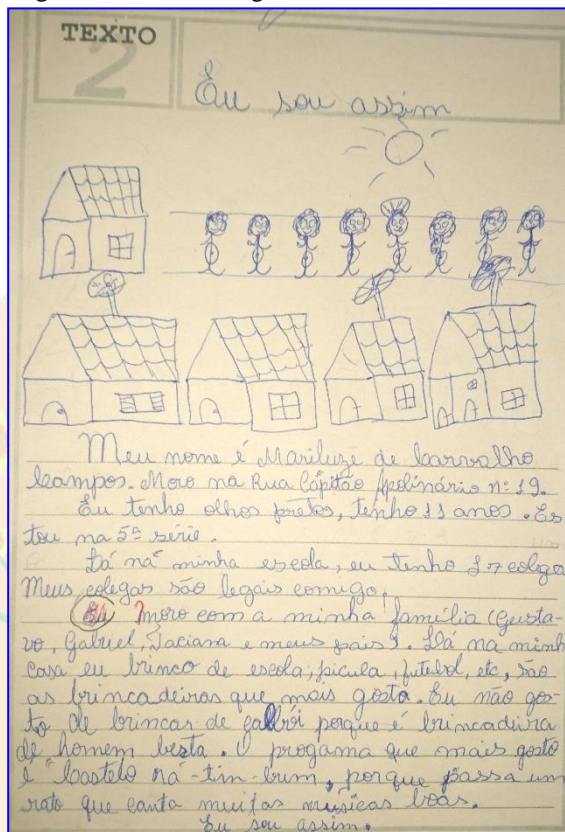 TEXTO
2
Eu sou assim
Meu nome é Mariluze de Carvalho
Campos. Moro na Rua Capitão Apolinário nº 19.
Eu tenho olhos pretos, tenho 11 anos. Es
tou na 5ª série.
Lá na minha escola, eu tenho 17 colega
Meus colegas são legais comigo.
moro com a minha família (Gusta-
vo, Gabriel, Taciana e meus pais). Lá na minh
casa eu brinco de escola, picula, futebol, etc, são
as brincadeiras que mais gosta. Eu não gos-
to de brincar de porque é brincadeira
de homem besta. O progama que mais gosto
é "Castelo rá-tin-bum, porque passa um
rato que canta muitas musicas boas.
Eu sou assim.